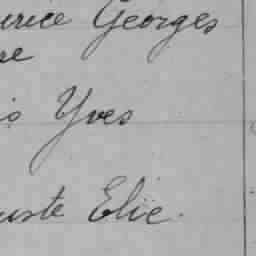 urice Georges
se
is Yves
uste Elie.